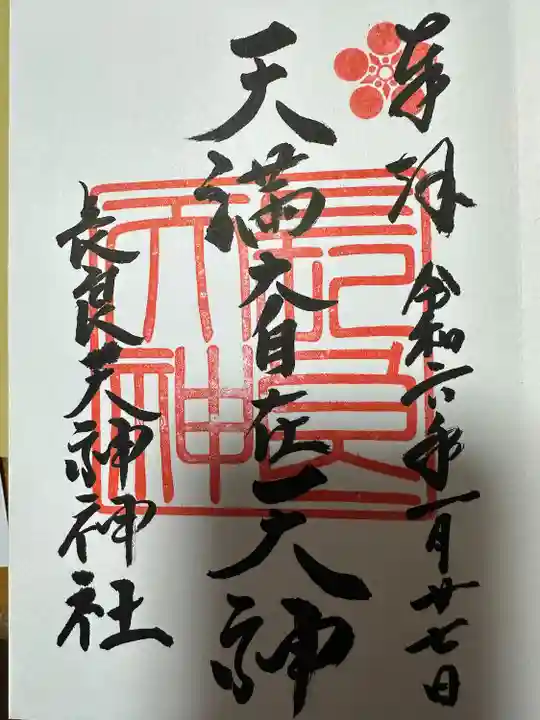 奉拝 令和六年一月廿七日
天満大自在天神
長良天神神社